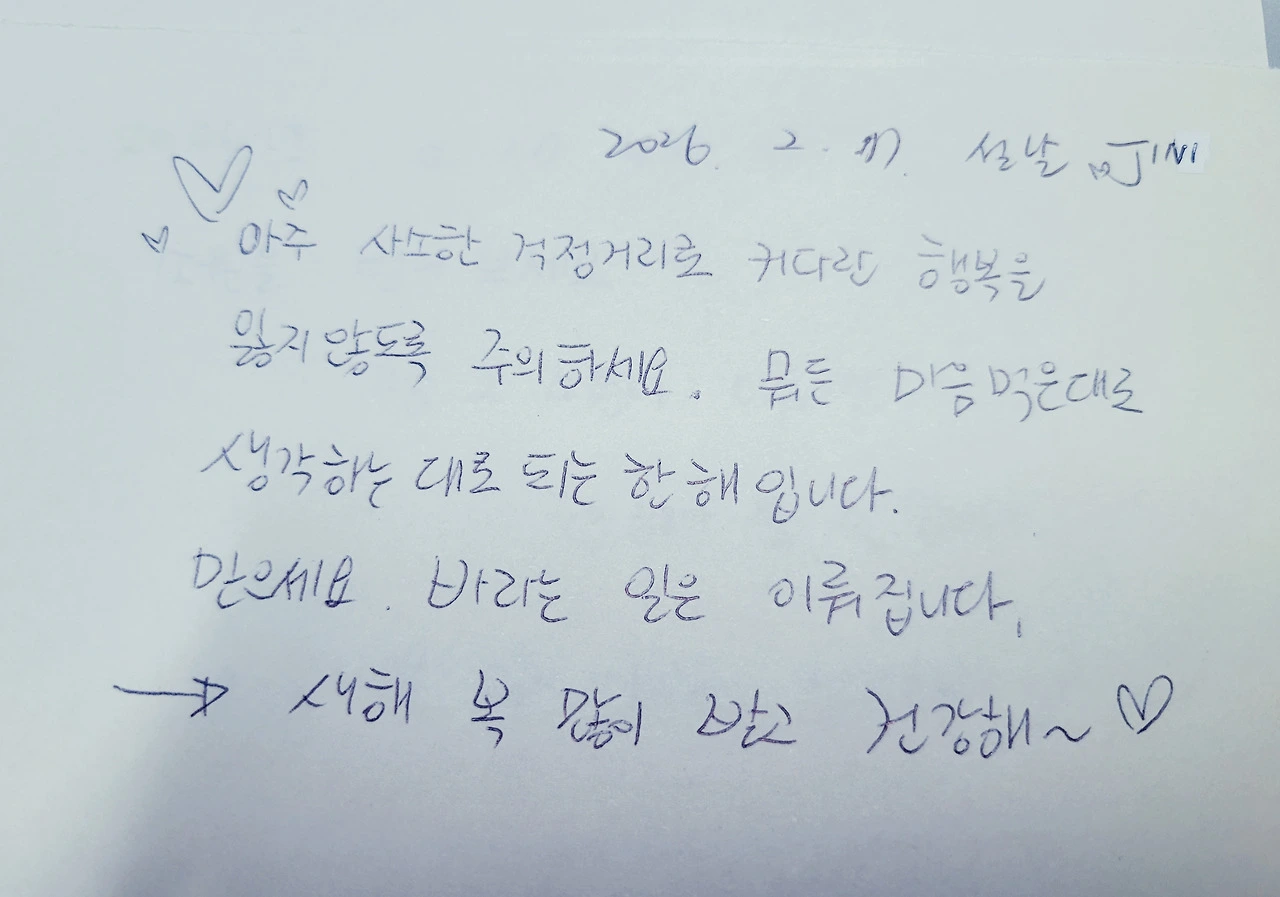 2026. 2. 17. 설날 JINI
아주 사소한 걱정거리로 커다란 행복을
잃지않도록 주의하세요. 뭐든 마음먹은대로
생각하는 대로 되는 한 해 입니다.
믿으세요. 바라는 일은 이뤄집니다.
→ 새해 복 많이 받고 건강해~ ♡